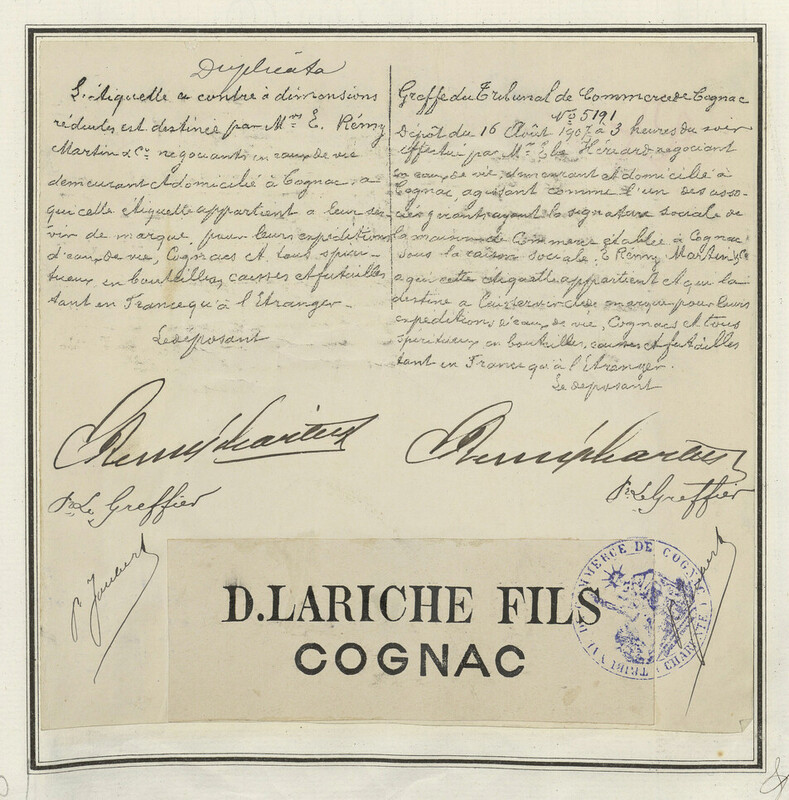 Duplicata
L'étiquette ci contre à dimensions
réduites est destinée par Mrs E. Rémy
Martin & Cie négociants en eaux de vie
demeurant et domicilié à Cognac, a
qui cette étiquette appartient a leur ser-
vir de marque, pour leurs expéditions
d'eaux de vie, Cognacs et tous spiri-
tueux en bouteilles, caisses et futailles
tant en France qu'à l'Etranger.-
Le déposant
Remy Martin
Pr Le Greffier
Greffe du Tribunal de Commerce de Cognac
No 5191
Dépôt du 16 Août 1907 à 3 heures du soir
effectué par Mr Elie Hériard négociant
en eaux de vie, demeurant et domicilié à
Cognac, agissant comme l'un des asso-
ciés gérants ayant la signature sociale de
la maison de Commerce établie à Cognac
sous la raison sociale: E Rémy Martin & Cie
a qui cette étiquette appartient et qui la
destine à marque pour leurs
expéditions d'eaux de vie, Cognacs et tous
spiritueux en bouteilles, caisses et futailles
tant en France qu'à l'étranger.
Le déposant
Remy Martin
Pr Le Greffier
D. LARICHE FILS
COGNAC
TRIBUNAL DE COMMERCE DE COGNAC (CHARENTE)